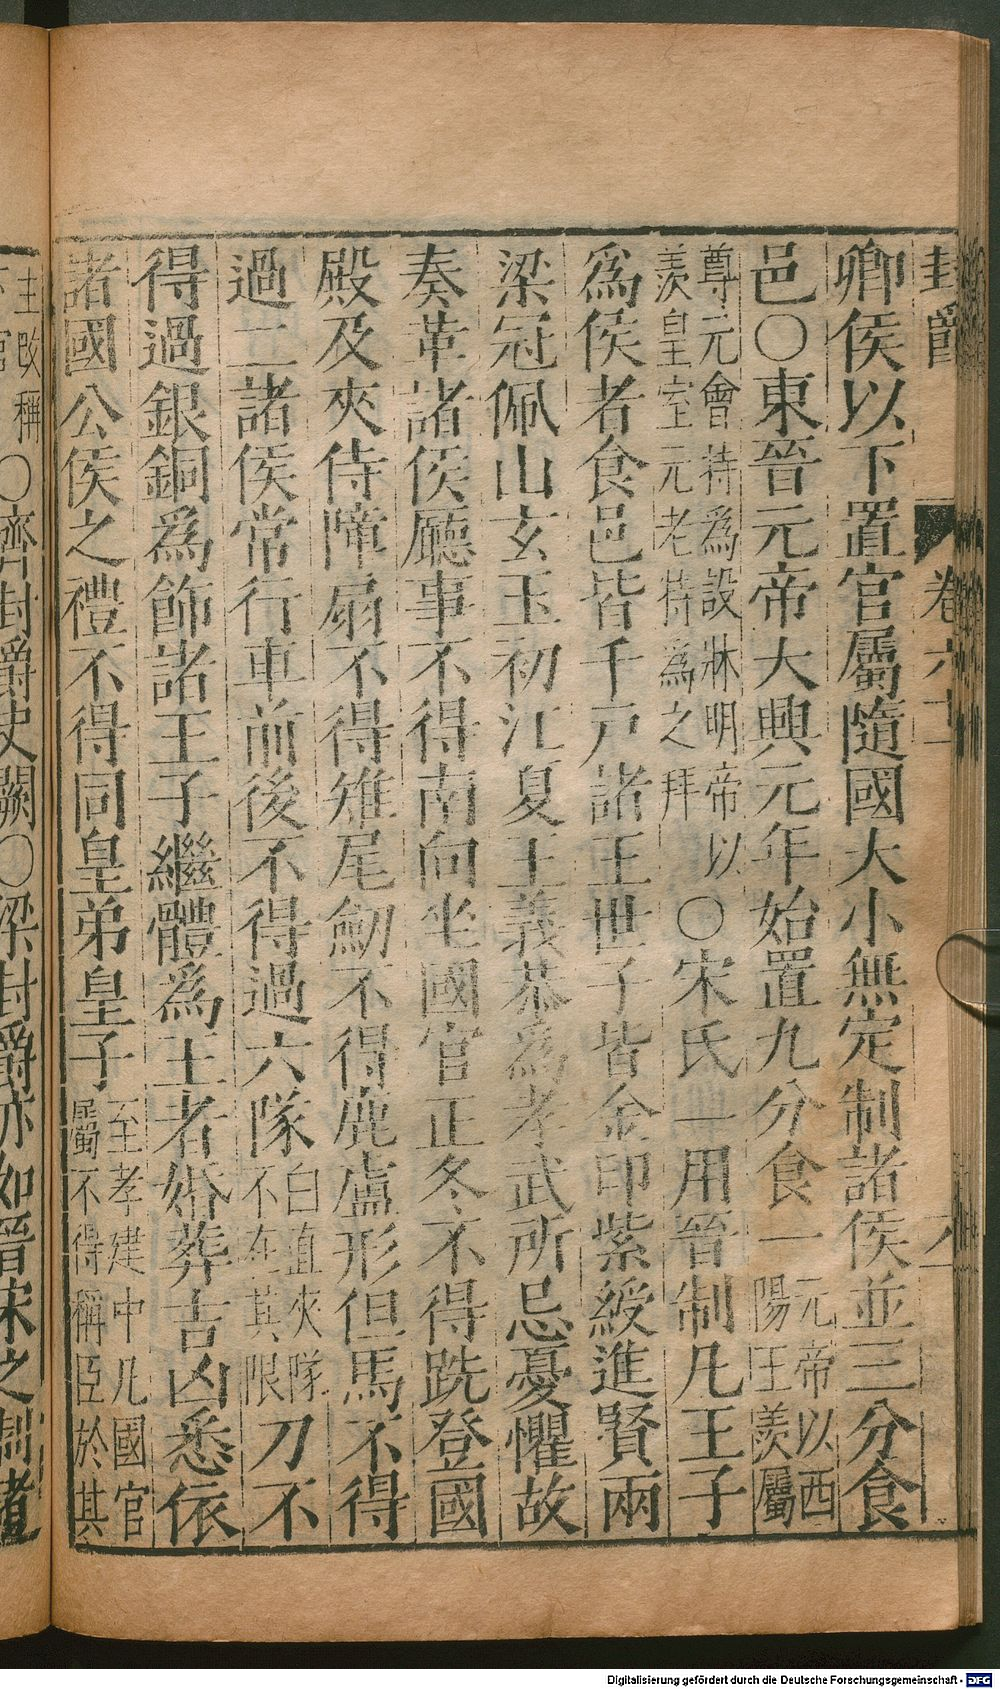 封爵 卷六十一 八
卿侯以下置官屬隨國大小無定制諸侯並三分食
邑〇東晉元帝大興元年始置九分食一元帝以西陽王羕屬
尊元會特為設牀明帝以羨皇室元老特為之拜〇宋氏一用晉制凡王子
爲侯者食邑皆千戸諸王世子皆金印紫綬進賢兩
梁冠佩山玄玉初江夏王義恭爲孝武所忌憂懼故
奏革諸侯廳事不得南向坐國官正冬不得跣登國
殿及夾侍障扇不得雉尾劒不得鹿盧形但馬不得
過二諸侯常行車前後不得過六隊白直夾隊不在其限刀不
得過銀銅爲飾諸王子繼體爲王者婚葬吉凶悉依
諸國公侯之禮不得同皇弟皇子至孝建中凡國官屬不得稱臣於其
主改稱下官〇齊封爵史闕〇梁封爵亦如晉宋之制諸
Digitalisierung gefördert durch die Deutsche Forschungsgemeinschaft - DFG